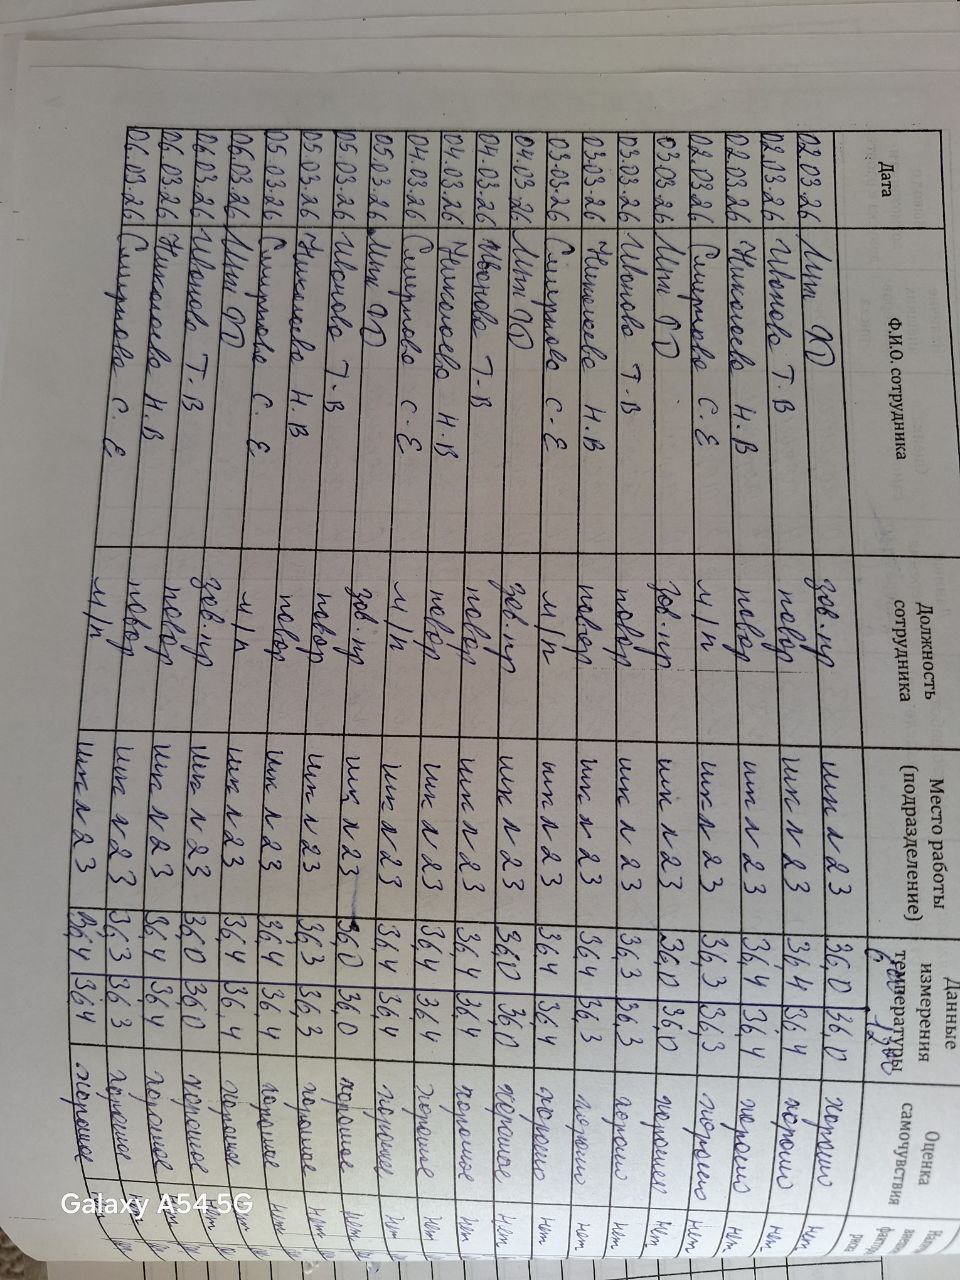 Дата Ф.И.О. сотрудника Должность сотрудника Место работы (подразделение) Данные измерения температуры Оценка самочувствия
6 00 13 00
02.03.26 зав.пр шк N 23 36,0 36,0 хорошо нет
02.03.26 Иванова Т.В повар шк N 23 36,4 36,4 хорошо нет
02.03.26 Николаева Н.В повар шк N 23 36,4 36,4 хорошо нет
02.03.26 Смирнова С.Е м/п шк N 23 36,3 36,3 хорошо нет
03.03.26 зав.пр шк N 23 36,0 36,0 хорошее нет
03.03.26 Иванова Т.В повар шк N 23 36,3 36,3 хорошо нет
03.03.26 Николаева Н.В повар шк N 23 36,4 36,3 хорошо нет
03.03.26 Смирнова С.Е м/п шк N 23 36,4 36,4 хорошо нет
04.03.26 зав.пр шк N 23 36,0 36,0 хорошее нет
04.03.26 Иванова Т.В повар шк N 23 36,4 36,4 хорошее нет
04.03.26 Николаева Н.В повар шк N 23 36,4 36,4 хорошее нет
04.03.26 Смирнова С.Е м/п шк N 23 36,4 36,4 хорошее нет
05.03.26 зав.пр шк N 23 36,0 36,0 хорошее нет
05.03.26 Иванова Т.В повар шк N 23 36,3 36,3 хорошее нет
05.03.26 Николаева Н.В повар шк N 23 36,4 36,4 хорошее нет
05.03.26 Смирнова С.Е м/п шк N 23 36,4 36,4 хорошее нет
06.03.26 зав.пр шк N 23 36,0 36,0 хорошее нет
06.03.26 Иванова Т.В повар шк N 23 36,4 36,4 хорошее нет
06.03.26 Николаева Н.В повар шк N 23 36,3 36,3 хорошее нет
06.03.26 Смирнова С.Е м/п шк N 23 36,4 36,4 хорошее нет
Galaxy A54 5G